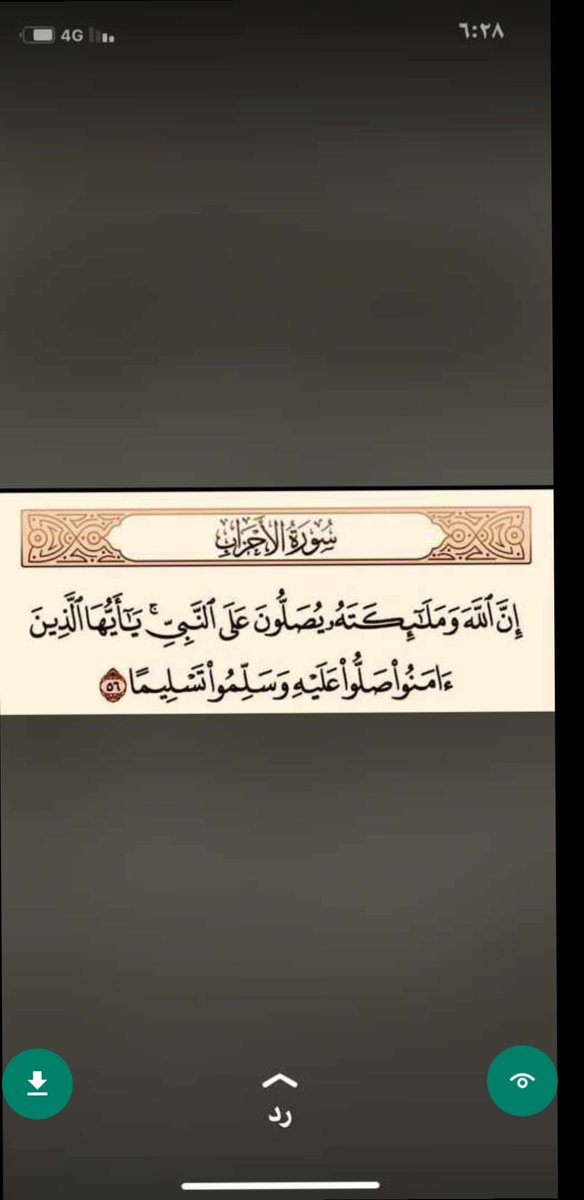 ٦:٢٨
4G
سُورَةُ الأَحْزَابِ
إِنَّ ٱللَّهَ وَمَلَٰٓئِكَتَهُۥ يُصَلُّونَ عَلَى ٱلنَّبِىِّ ۚ يَٰٓأَيُّهَا ٱلَّذِينَ
ءَامَنُوا۟ صَلُّوا۟ عَلَيْهِ وَسَلِّمُوا۟ تَسْلِيمًا ٥٦
رد